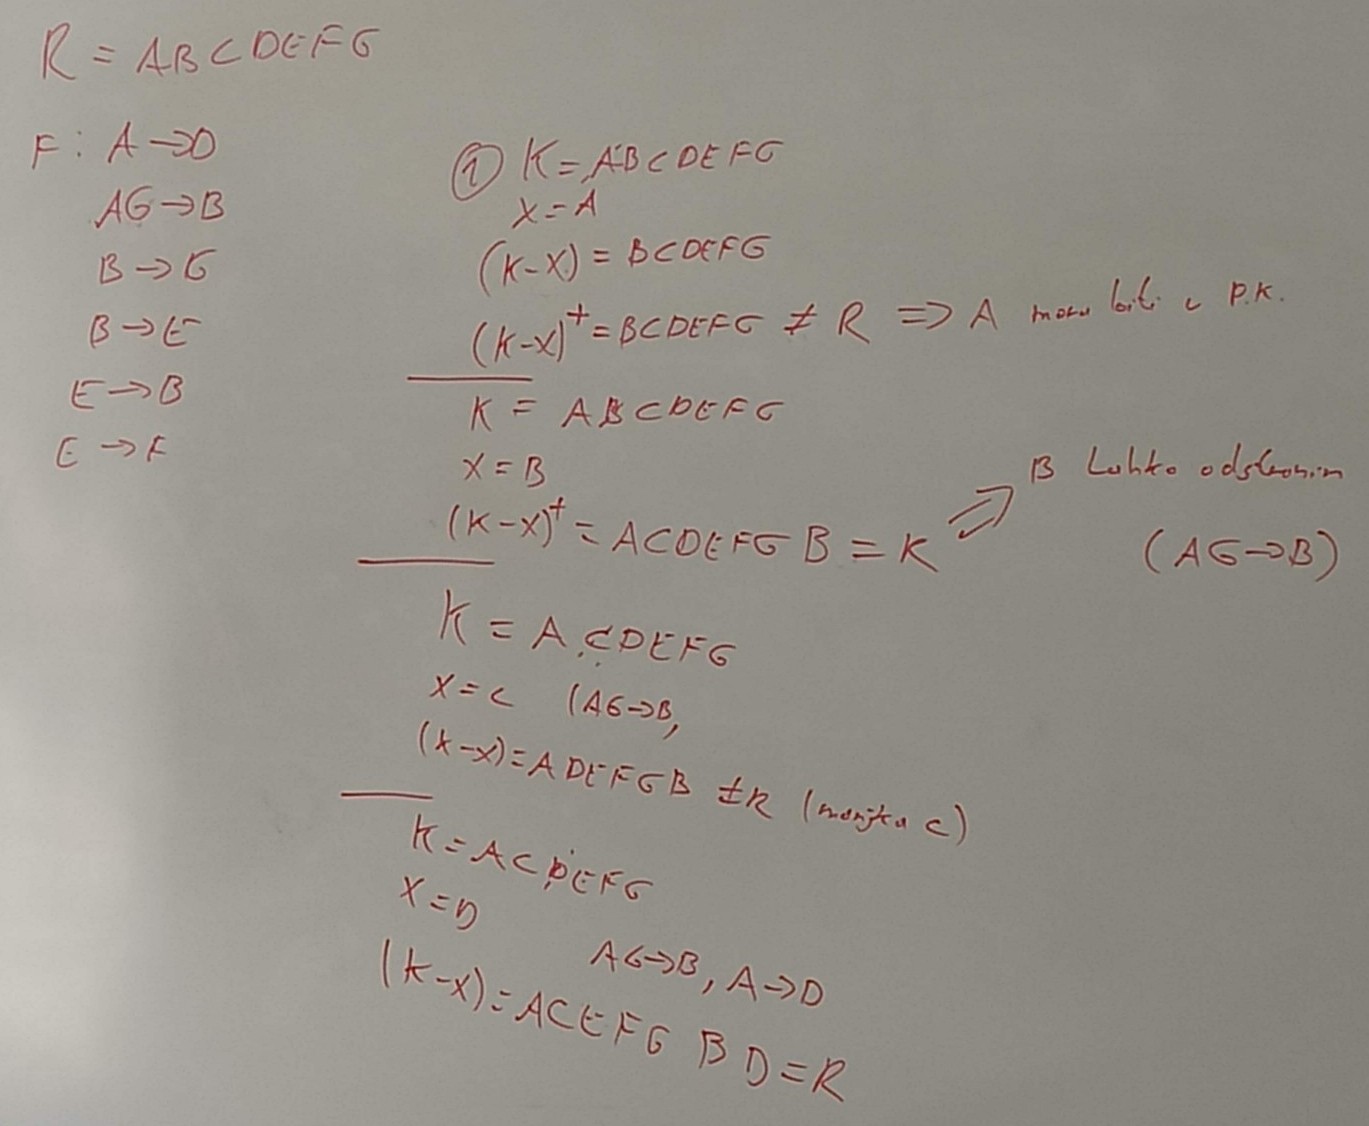 R = ABCDEFG
F: A→D
AG→B
B→G
B→E
E→B
E→F
① K=ABCDEFG
X=A
(K-X) = BCDEFG
(K-X)⁺ = BCDEFG ≠ R ⇒ A mora biti v P.K.
K = ABCDEFG
X = B
(K-X)⁺ = ACDEFG B = K ⇒ B Lahko odstranim
(AG→B)
K = ACDEFG
X = C (AG→B,
(K-X) = ADEFGB ≠ R (manjka C)
K = ACDEFG
X = D
AG→B, A→D
(K-X) = ACEFG B D = R